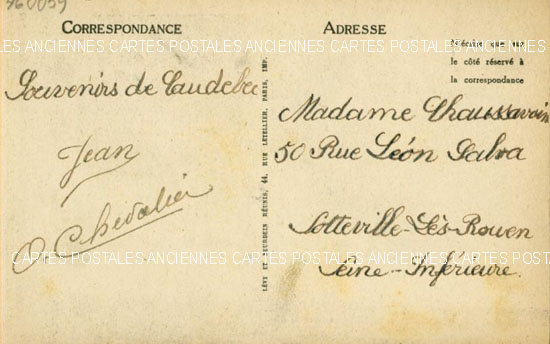 360059
CORRESPONDANCE
ADRESSE
CARTES POSTALES ANCIENNES CARTES POSTALES ANCIENNES CARTES POSTALES ANCIENNES
N'écrire que sur
le côté réservé à
la correspondance
Souvenirs de Caudebec
Jean
Chevalier
LÉVY ET NEURDEIN RÉUNIS, 44, RUE LETELLIER, PARIS, IMP.
Madame Chaussavoin
50 Rue Léon Salva
Sotteville-Lès-Rouen
Seine-Inférieure
CARTES POSTALES ANCIENNES CARTES POSTALES ANCIENNES CARTES POSTALES ANCIENNES